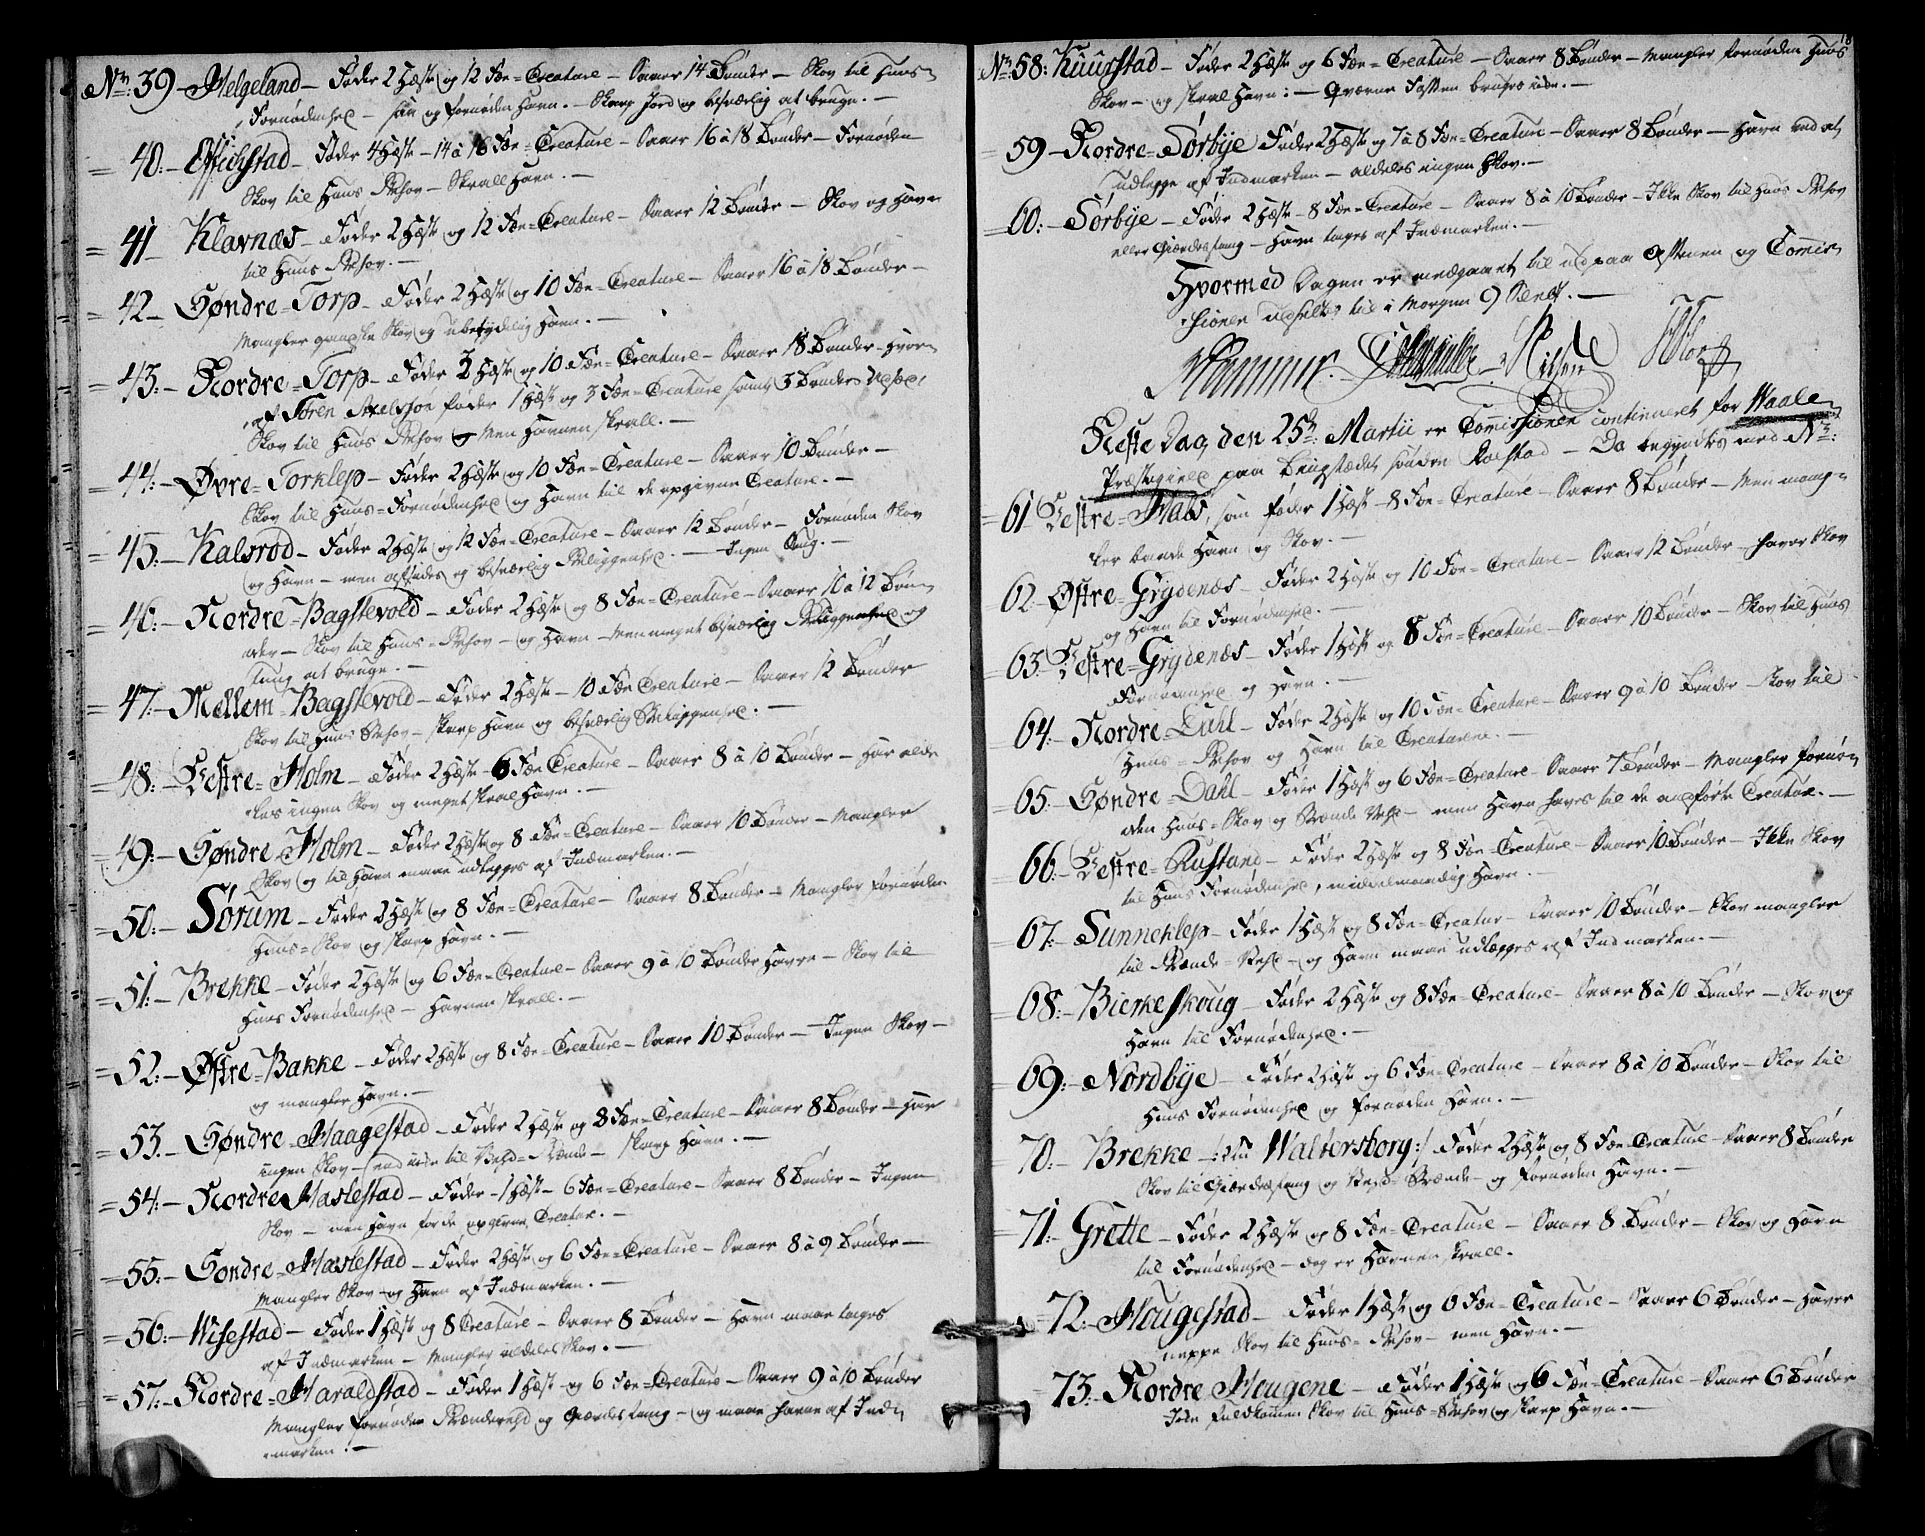 No. 39 - Helgeland - Føder 2 Hæste og 12 Fæe=Creature - Saaer 14 Tønder - Skov til Huus=
Fornødenhed - og fornøden Havn. - Skarp Jord og besværlig at bruge. -
= 40: - Føder 4 Hæste - 14 à 16 Fæe=Creature - Saaer 16 à 18 Tønder - Fornøden
Skov til Huus Behov - Skrall Havn. -
= 41 - Klavnæs - Føder 2 Hæste og 12 Fæe=Creature - Saaer 12 Tønder - Skov og Havn
til Huus Behov. -
= 42 - Søndre=Torp - Føder 2 Hæste og 10 Fæe=Creature - Saaer 16 à 18 Tønder -
Mangler gandske Skov og ubetydelig Havn. -
= 43: - Nordre=Torp - Føder 3 Hæste og 10 Fæe=Creature - Saaer 18 Tønder - Hvor=
=af Søren Axelssøn føder 1 Hæst og 3 Fæe=Creature samt 3 Tønders Udsæd,
Skov til Huus Behov - Men Havnen skrall. -
= 44: - Øvre=Torklep - Føder 2 Hæste og 10 Fæe=Creature - Saaer 10 Tønder -
Skov til Huus=Fornødenhed og Havn til de opgivne Creature. -
= 45: - Kalsrød - Føder 2 Hæste og 12 Fæe=Creature - Saaer 12 Tønder - Fornøden Skov
og Havn - men afsides og besværlig Beliggenhed. - Ingen Saug. -
= 46: - Nordre=Bagstevold - Føder 2 Hæste og 8 Fæe=Creature - Saaer 10 à 12 Tøn=
der - Skov til Huus=Behov - og Havn - Men meget besværlig Beliggenhed og
tung at bruge. -
= 47: - Mellem=Bagstevold - Føder 2 Hæste - 10 Fæe Creature - Saaer 12 Tønder
Skov til Huus Behov - skarp Havn og besværlig Beliggenhed. -
= 48: - Vestre=Holm - Føder 2 Hæste - 6 Fæe Creature - Saaer 8 à 10 Tønder - Har alde=
=les ingen Skov og meget skral Havn. -
= 49: - Søndre=Holm - Føder 2 Hæste og 8 Fæe=Creature - Saaer 10 Tønder - Mangler
Skov og til Havn maae udlegges af Indmarken. -
= 50: - Sørum - Føder 2 Hæste og 8 Fæe=Creature - Saaer 8 Tønder - Mangler fornøden
Huus=Skov og skarp Havn. -
= 51: - Brekke - Føder 2 Hæste og 6 Fæe=Creature - Saaer 9 à 10 Tønder Havre - Skov til
Huus Fornødenhed - Havnen skrall. -
= 52: - Østre=Bakke - Føder 2 Hæste og 8 Fæe=Creature - Saaer 10 Tønder - Ingen Skov -
og mangler Havn. -
= 53. - Søndre=Haagestad - Føder 2 Hæste og 8 Fæe=Creature - Saaer 8 Tønder - Har
ingen Skov - end ikke til Vehd=Brænde - skarp Havn. -
= 54: - Nordre Haslestad - Føder - 1 Hæst - 6 Fæe=Creature - Saaer 8 Tønder - Ingen
Skov - men Havn for de opgivne Creature. -
= 55: - Søndre=Haslestad - Føder 2 Hæste og 6 Fæe=Creature - Saaer 8 à 9 Tønder -
Mangler Skov og Havn af Indmarken. -
= 56: - Wisestad - Føder 1 Hæst og 8 Creature - Saaer 8 Tønder - Havn maae tages
af Indmarken - Mangler aldeles Skov. -
= 57: - Nordre=Haraldstad - Føder 1 Hæst og 6 Fæe=Creature - Saaer 9 à 10 Tønder
Mangler fornøden Brændevehd og Gierdesfang - og maae havne af Ind=
=marken. -
18
No. 58: Kuurstad - Føder 2 Hæste og 6 Fæe=Creature - Saaer 8 Tønder - Mangler fornøden Huus
Skov - og skral Havn: - Qværne Fossen bruges ikke. -
= 59 - Nordre=Sørbye Føder 2 Hæste og 7 à 8 Fæe=Creature - Saaer 8 Tønder - Havn ved at
udlegge af Indmarken - aldeles ingen Skov. -
= 60: - Sørbye - Føder 2 Hæste - 8 Fæe=Creature - Saaer 8 à 10 Tønder - Ikke Skov til Huus Behov
eller Gierdesfang - Havn tages af Indmarken. -
Hvormed Dagen er medgaaet til ud paa Aftenen og Commis=
=sionen udsettes til i Morgen 9 Slet. -
Hammer. Nilsen
Neste Dag den 25de Martii er Commissionen continueret for Waale
Præstegield paa Tingstædet søndre Rolstad - Da begyndtes med No.
= 61 - Vestre=Hals, som føder 1 Hæst - 8 Fæe=Creature - Saaer 8 Tønder - Men mang=
ler baade Havn og Skov. -
= 62 - Østre=Grydenæs - Føder 2 Hæste og 10 Fæe=Creature - Saaer 12 Tønder - haver Skov
og Havn til Fornødenhed. -
= 63. Vestre=Grydenæs - Føder 1 Hæst og 8 Fæe=Creature - Saaer 10 Tønder - Skov til Huus
Fornødenhed og Havn. -
= 64: - Nordre=Dahl - Føder 2 Hæste og 10 Fæe=Creature - Saaer 9 à 10 Tønder - Skov til
Huus=Behov og Havn til Creaturene. -
= 65. - Søndre=Dahl - Føder 1 Hæst og 6 Fæe=Creature - Saaer 7 Tønder - Mangler fornø=
den Huus=Skov og Brænde Vehd - men Havn haves til de anførte Creature. -
= 66: - Vestre=Rustand - Føder 2 Hæste og 8 Fæe=Creature - Saaer 10 Tønder - Ikke Skov
til Huus Fornødenhed, middelmaadig Havn. -
= 67: - Sunneklep - Føder 1 Hæst og 8 Fæe=Creatur - Saaer 10 Tønder - Skov mangler
til Brænde=Vehd - og Havn maae udlegges af Indmarken. -
= 68: - Bierkeskoug - Føder 2 Hæste og 8 Fæe=Creature - Saaer 8 à 10 Tønder - Skov og
Havn til Fornødenhed. -
= 69: - Nordbye - Føder 2 Hæste og 6 Fæe=Creature - Saaer 8 à 10 Tønder - Skov til
Huus Fornødenhed og fornøden Havn. -
= 70: - Brekke - /: nu Waltersborg :/ Føder 2 Hæste og 8 Fæe=Creature - Saaer 8 Tønder
Skov til Gierdesfang og Vehd=Brænde - og fornøden Havn. -
= 71: - Grette - Føder 2 Hæste og 8 Fæe=Creature - Saaer 8 Tønder - Skov og Havn
til Fornødenhed - dog er Havnen skrall.
= 72: - Hougestad - Føder 1 Hæst og 6 Fæe=Creature - Saaer 6 Tønder - Haver
neppe Skov til Huus=Behov - men Havn. -
= 73: Nordre Hougene - Føder 1 Hæst og 6 Fæe=Creature - Saaer 6 Tønder
Ikke fuldkommen Skov til Huus=Behov og skarp Havn. -